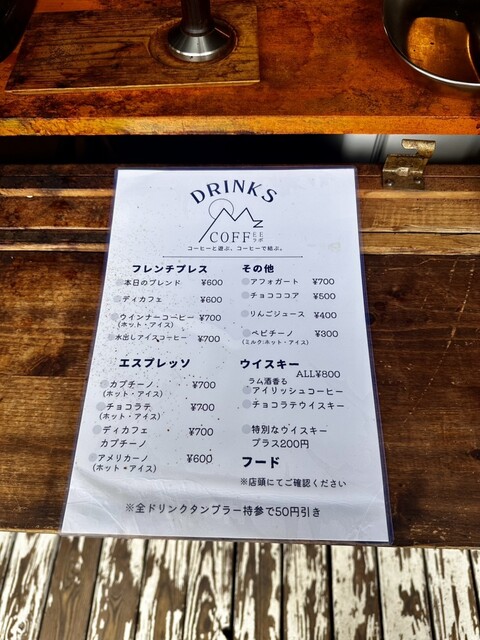 DRINKS
COFFEE
ラボ
コーヒーと遊ぶ、コーヒーで結ぶ。
フレンチプレス
本日のブレンド ¥600
ディカフェ ¥600
ウインナーコーヒー ¥700
(ホット・アイス)
水出しアイスコーヒー ¥700
エスプレッソ
カプチーノ ¥700
(ホット・アイス)
チョコラテ ¥700
(ホット・アイス)
ディカフェ ¥700
カプチーノ
アメリカーノ ¥600
(ホット・アイス)
その他
アフォガート ¥700
チョコココア ¥500
りんごジュース ¥400
ベビチーノ ¥300
(ミルク:ホット・アイス)
ウイスキー
ALL¥800
ラム酒香る
アイリッシュコーヒー
チョコラテウイスキー
特別なウイスキー
プラス200円
フード
※店頭にてご確認ください
※全ドリンクタンブラー持参で50円引き